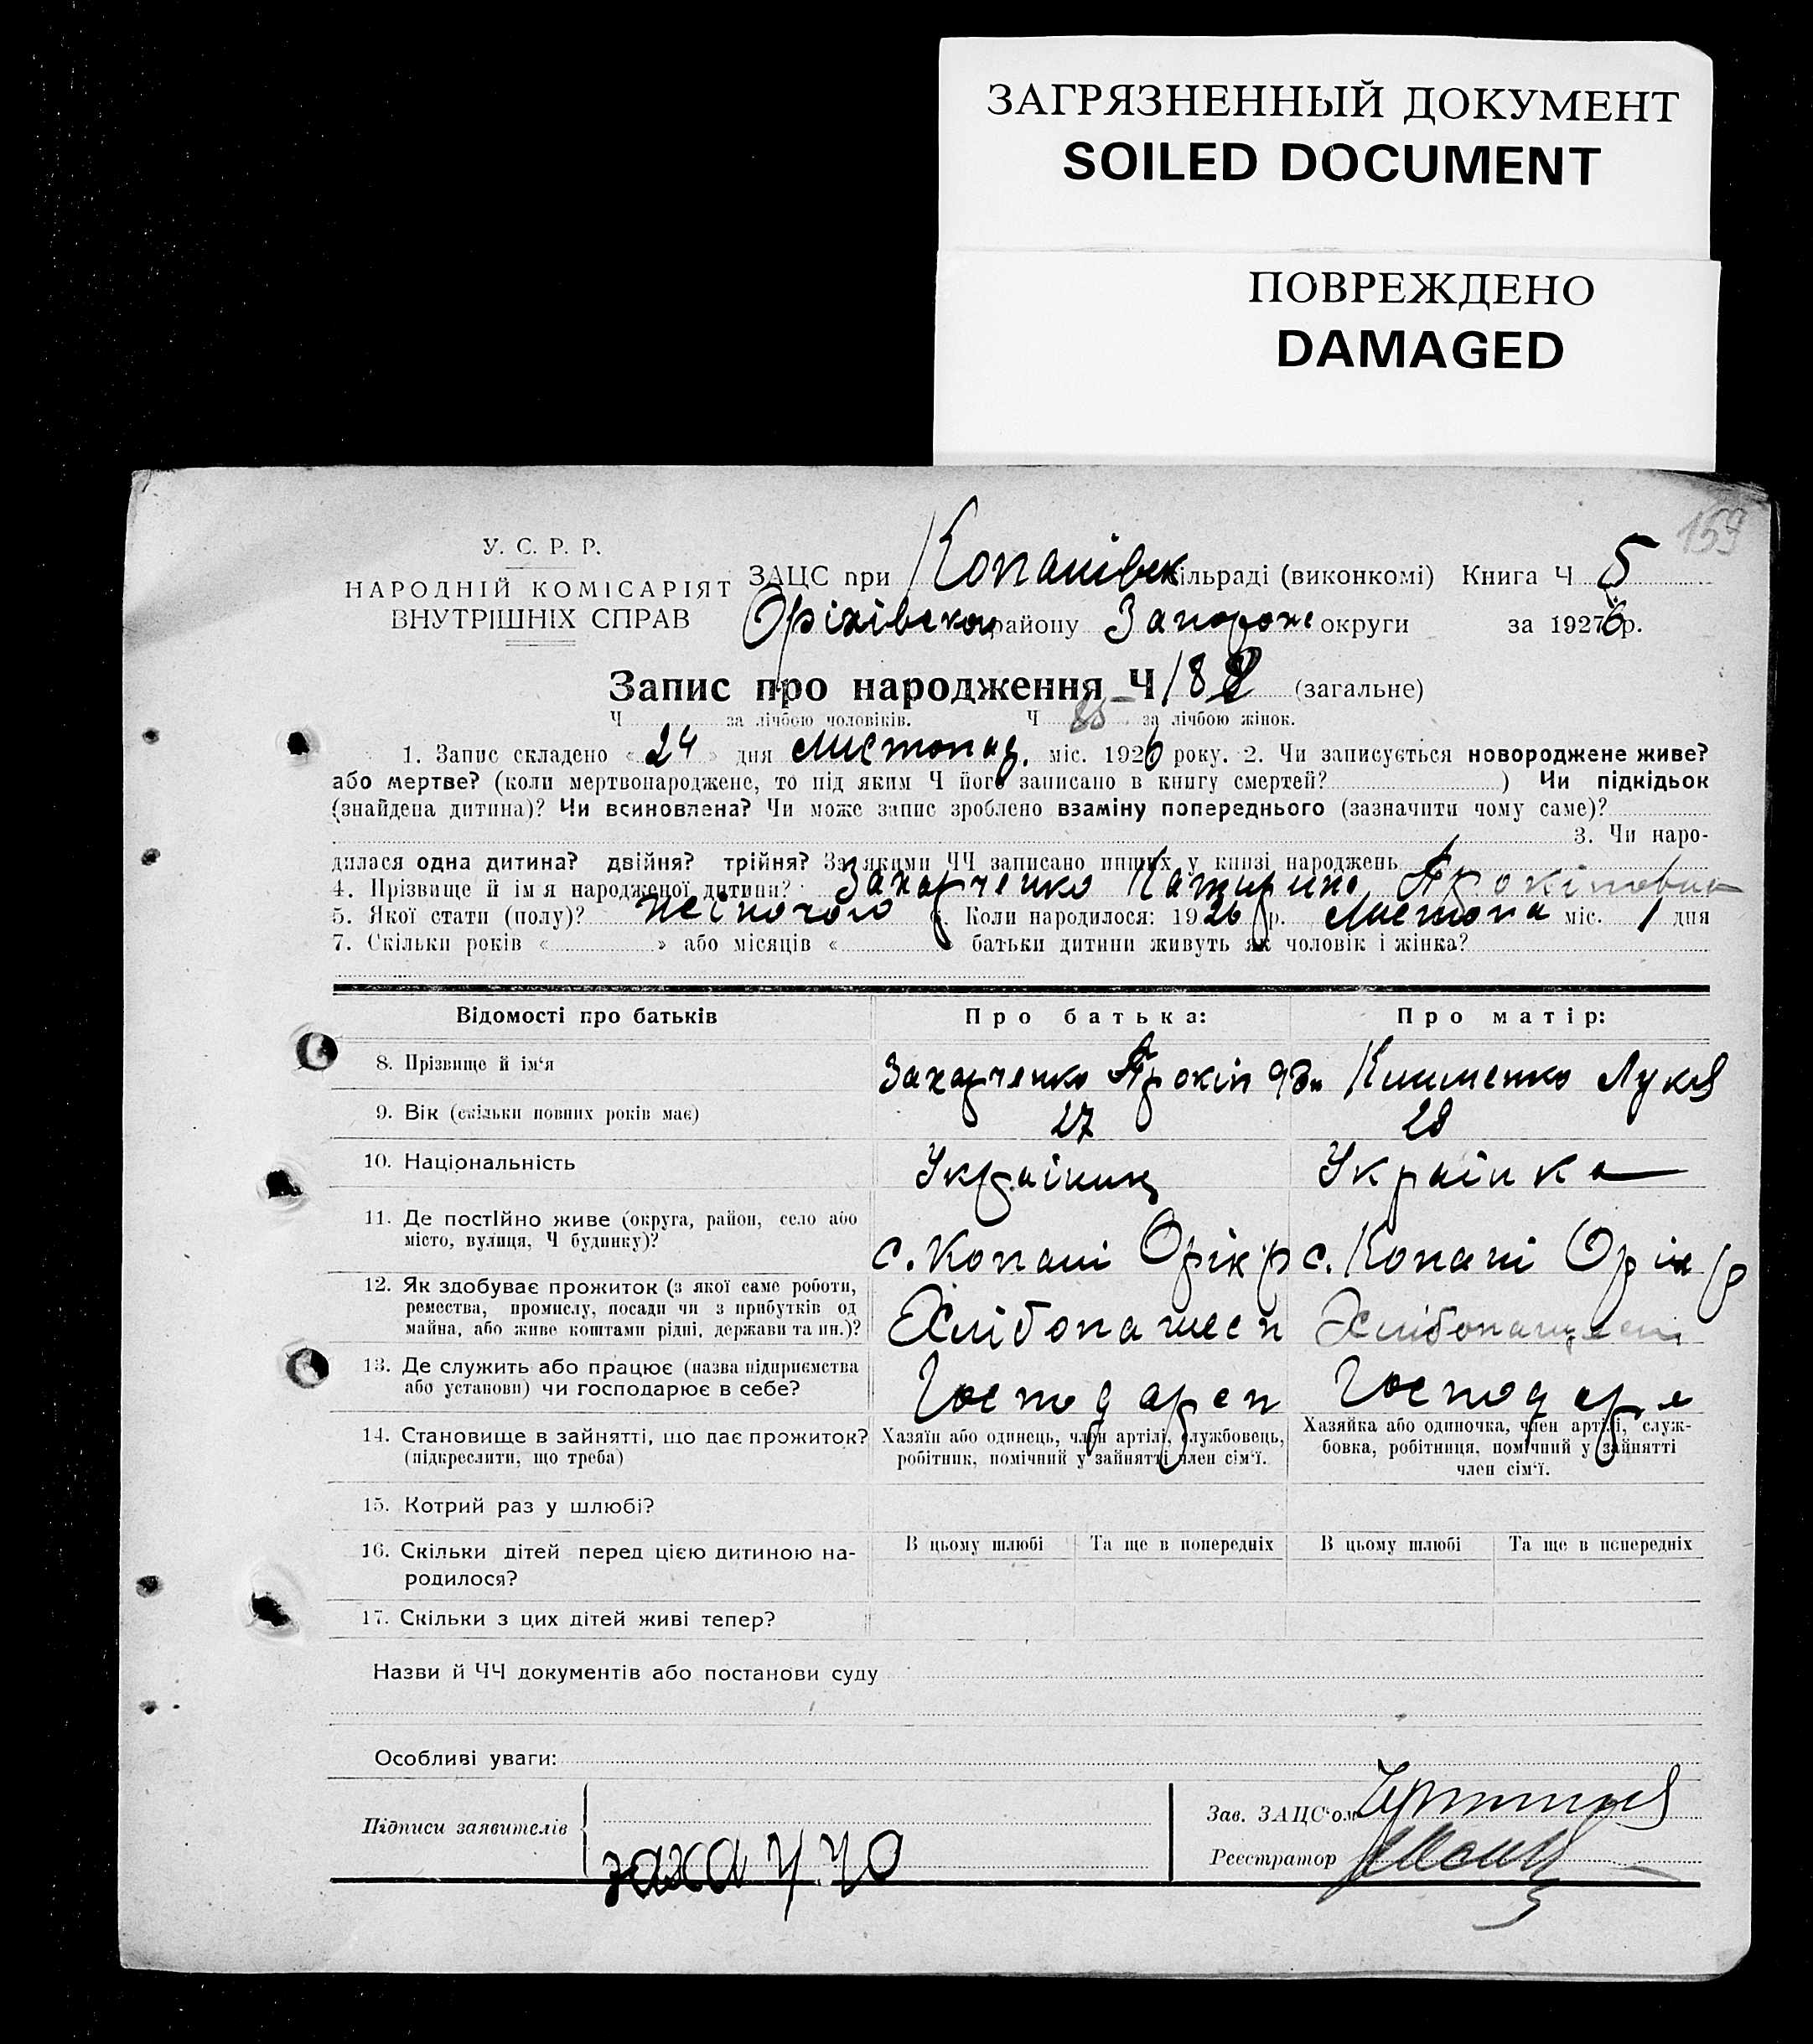 ЗАГРЯЗНЕННЫЙ ДОКУМЕНТ
SOILED DOCUMENT
ПОВРЕЖДЕНО
DAMAGED
159
У. С. Р. Р.
НАРОДНІЙ КОМІСАРІЯТ
ВНУТРІШНІХ СПРАВ
ЗАЦС при Копанівск сільраді (виконкомі) Книга Ч 5
Оріхівськ району Запороже округи за 1926 р.
Запис про народження Ч 188 (загальне)
Ч за лічбою чоловіків. Ч 85 за лічбою жінок.
1. Запис складено « 24 » дня Листопад. міс. 1926 року. 2. Чи записується новороджене живе?
або мертве? (коли мертвонароджене, то під яким Ч його записано в книгу смертей? ) Чи підкідьок
(знайдена дитина)? Чи всиновлена? Чи може запис зроблено взаміну попереднього (зазначити чому саме)?
3. Чи наро-
дилася одна дитина? двійня? трійня? За якими ЧЧ записано инших у книзі народжень
4. Прізвище й ім'я народженої дитини? Захарченко Катирина Прокіповна
5. Якої стати (полу)? Жіночого 6. Коли народилося: 1926 р. Листопа міс. 1 дня
7. Скільки років « » або місяців « » батьки дитини живуть як чоловік і жінка?
Відомості про батьків Про батька: Про матір:
8. Прізвище й ім'я Захарченко Прокіп Клименко Лукія
9. Вік (скільки повних років має) 27 28
10. Національність Україниц Українка
11. Де постійно живе (округа, район, село або
місто, вулиця, Ч будинку)? с. Копані Оріх р с. Копані Оріх р
12. Як здобуває прожиток (з якої саме роботи,
ремества, промислу, посади чи з прибутків од
майна, або живе коштами рідні, держави та ин.)? Хлібопашесп Хлібопашесп
13. Де служить або працює (назва підприємства
або установи) чи господарює в себе? Господареп Господаре
14. Становище в зайнятті, що дає прожиток?
(підкреслити, що треба)
Хазяїн або одинець, член артілі, службовець,
робітник, помічний у зайнятті член сім'ї.
Хазяйка або одиночка, член артілі, служ-
бовка, робітниця, помічний у зайнятті
член сім'ї.
15. Котрий раз у шлюбі?
16. Скільки дітей перед цією дитиною на-
родилося?
В цьому шлюбі Та ще в попередніх В цьому шлюбі Та ще в попередніх
17. Скільки з цих дітей живі тепер?
Назви й ЧЧ документів або постанови суду
Особливі уваги:
Підписи заявителів
заха ч.чо
Зав. ЗАЦС'ом
Реєстратор